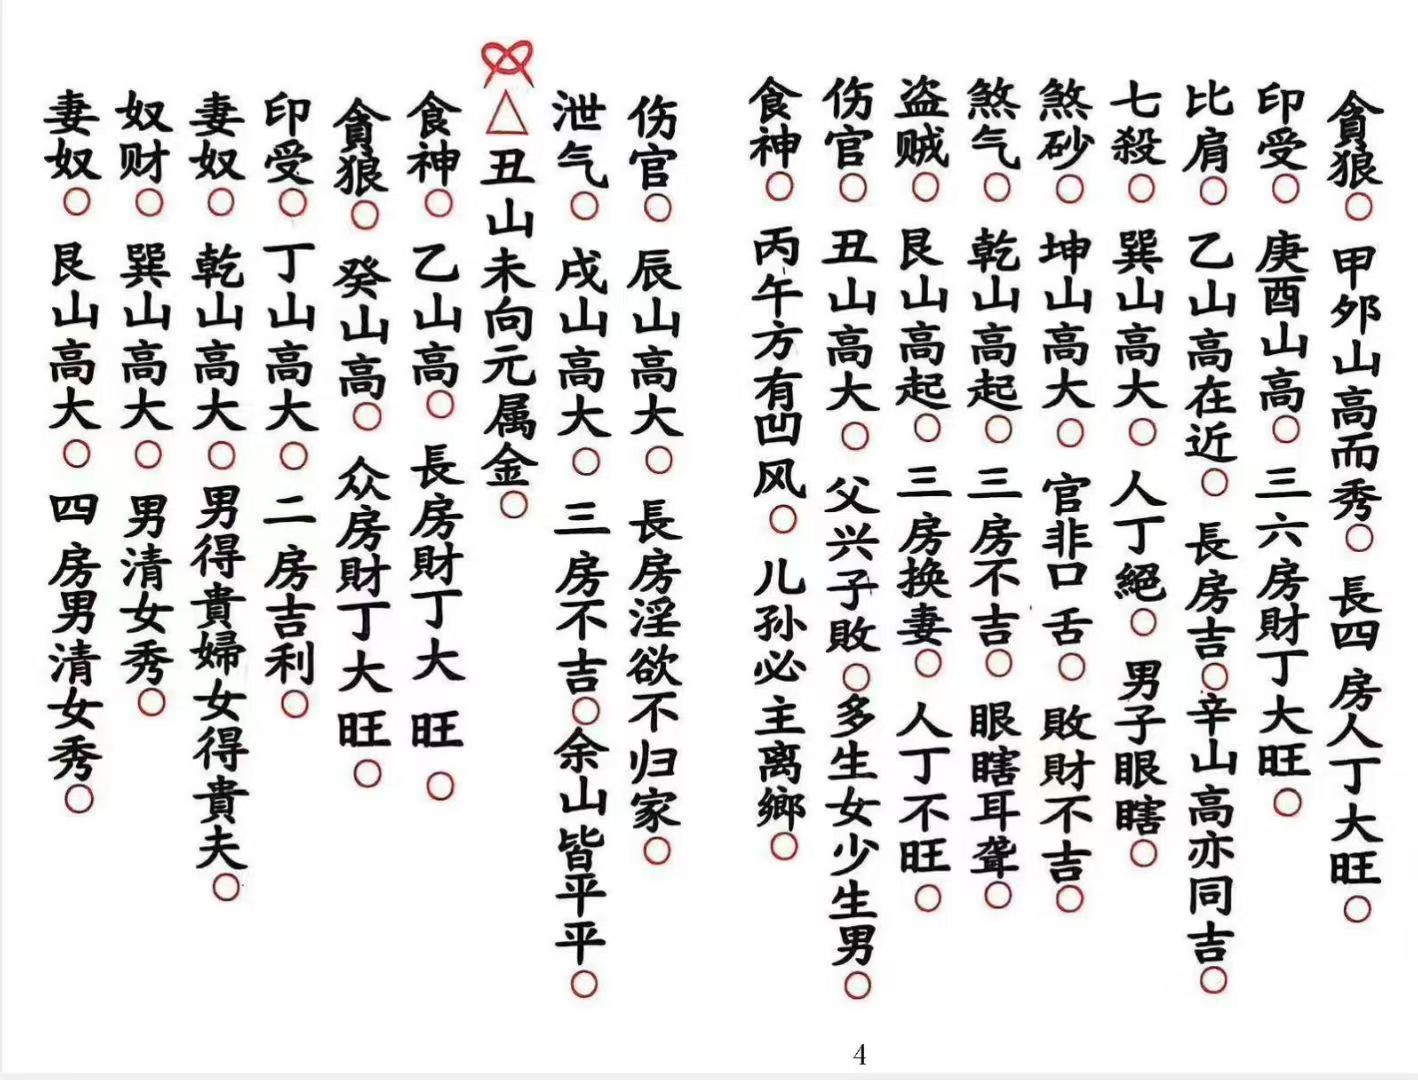 貪狼○甲夘山高而秀○長四房人丁大旺○
印受○庚酉山高○三六房財丁大旺○
比肩○乙山高在近○長房吉○辛山高亦同吉○
七殺○巽山高大○人丁絕○男子眼瞎○
煞砂○坤山高大○官非口舌○敗財不吉○
煞气○乾山高起○三房不吉○眼瞎耳聋○
盗贼○艮山高起○三房换妻○人丁不旺○
伤官○丑山高大○父兴子敗○多生女少生男○
食神○丙午方有凹风○儿孙必主离鄉○
伤官○辰山高大○長房淫欲不归家○
泄气○戌山高大○三房不吉○余山皆平平○
△丑山未向元属金○
食神○乙山高○長房財丁大旺○
貪狼○癸山高○众房財丁大旺○
印受○丁山高大○二房吉利○
妻奴○乾山高大○男得貴婦女得貴夫○
奴财○巽山高大○男清女秀○
妻奴○艮山高大○四房男清女秀○
4